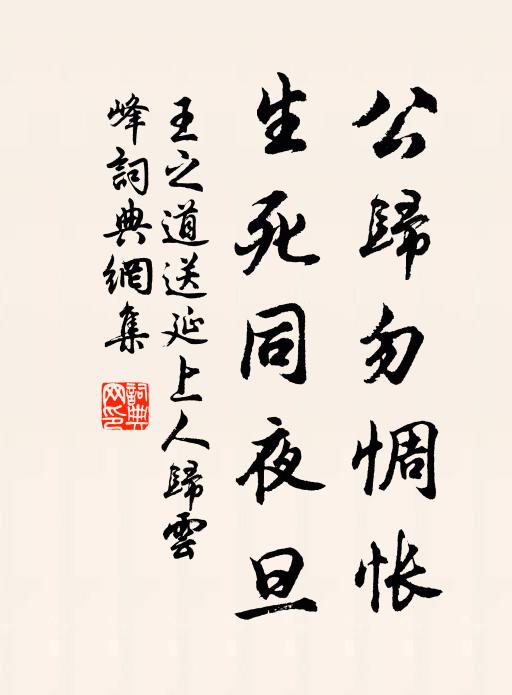 公歸勿惆怅
生死同夜旦
王之道送延上人歸雲
峰詞典網集
詞典
网印